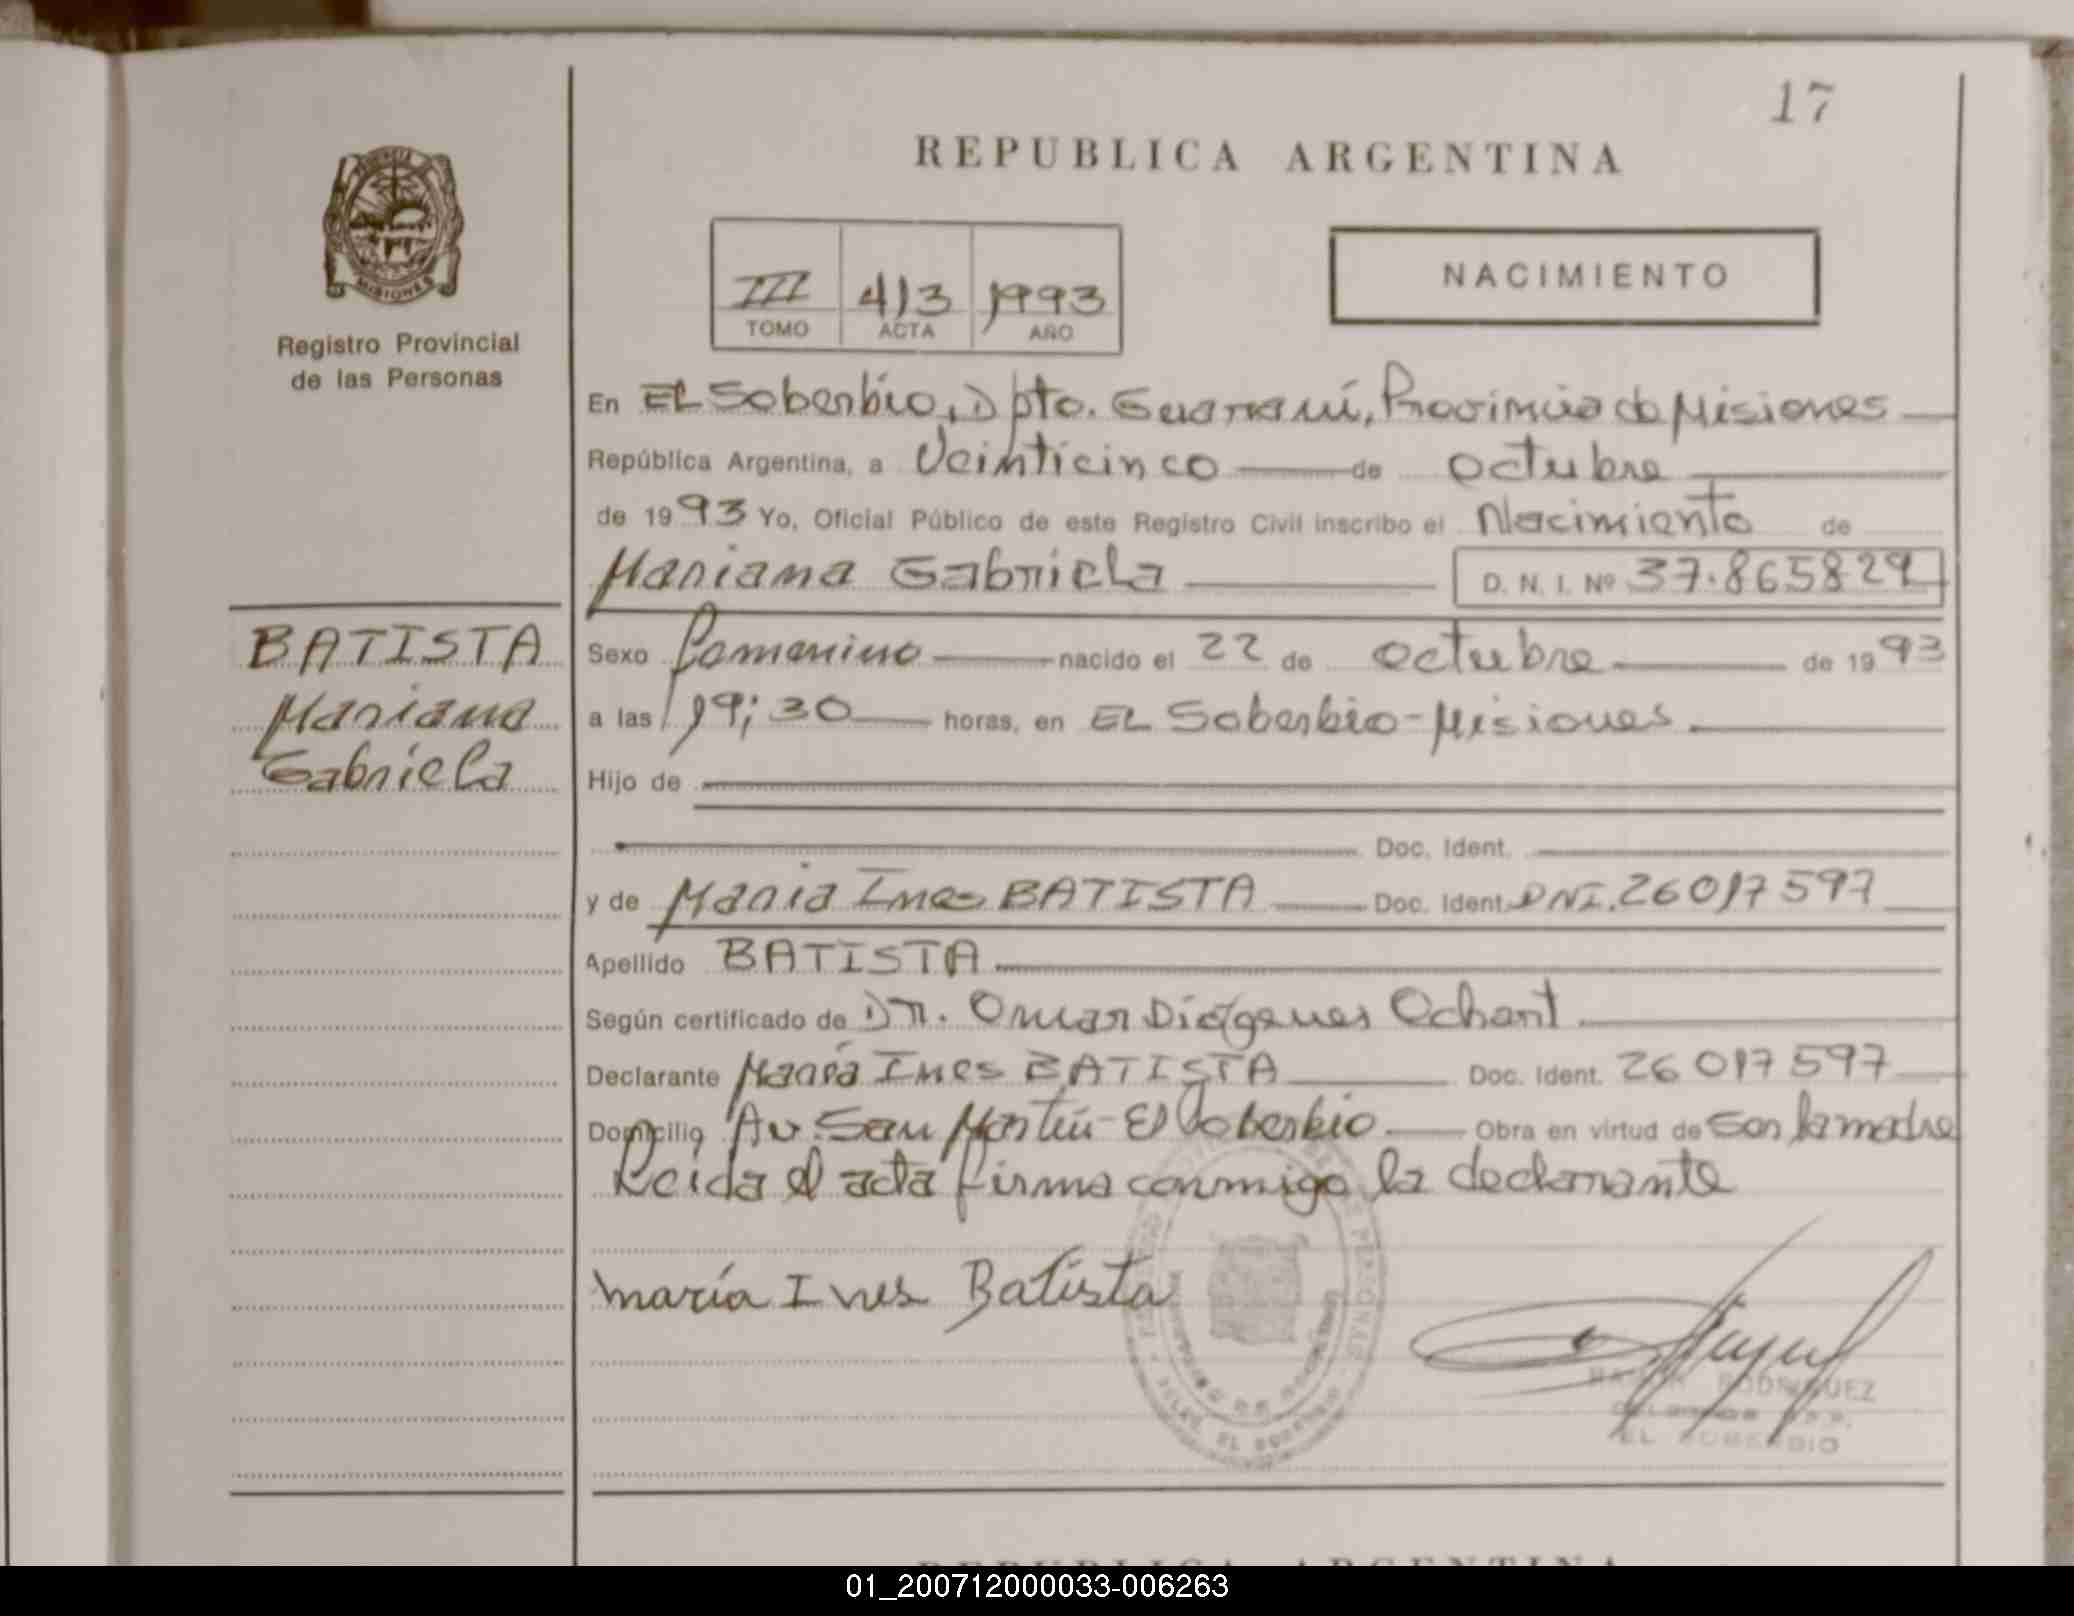 17
REPUBLICA ARGENTINA
MISIONES
Registro Provincial
de las Personas
III 413 1993
TOMO ACTA AÑO
NACIMIENTO
En EL Soberbio, Dpto. Guaraní, Provincia de Misiones
República Argentina, a Veinticinco de octubre
de 1993 Yo, Oficial Público de este Registro Civil inscribo el Nacimiento de
Mariana Gabriela D. N. I. Nº 37.865829
BATISTA
Mariana
Gabriela
Sexo femenino nacido el 22 de octubre de 1993
a las 19;30 horas, en EL Soberbio-Misiones
Hijo de
Doc. Ident.
y de Maria Ines BATISTA Doc. Ident. DNI. 26017597
Apellido BATISTA
Según certificado de Dr. Omar Diógenes Ochant
Declarante María Ines BATISTA Doc. Ident. 26017597
Domicilio Av. San Martín-El Soberbio Obra en virtud de ser la madre
Leida el acta firma conmigo la declarante
maría Ines Batista
RAMON RODRIGUEZ
EL SOBERBIO
REPUBLICA ARGENTINA
01_200712000033-006263